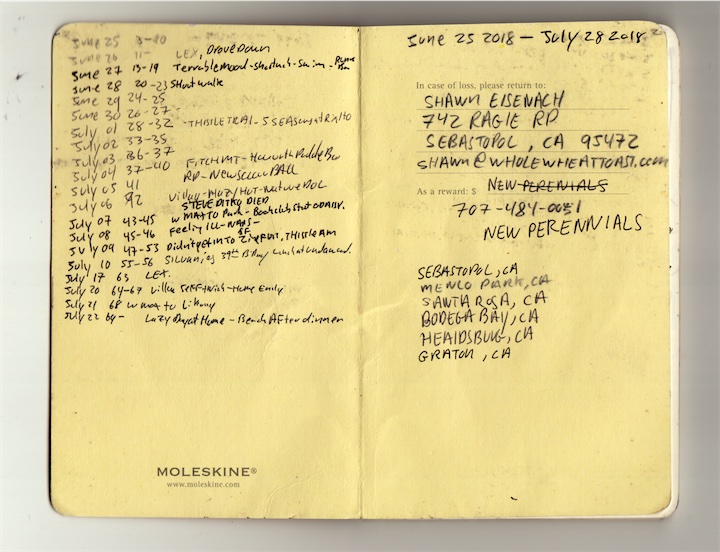 June 25 3-10
June 26 11-
LEX, Drove Down
June 27 13-19 Terrable Mood-Shortwalk-Swim-
June 28 20-23 Short walk
June 29 24-25
June 30 26-27-
July 01 28-32 -THISTLE TRAIL-5 SEASONS at Rialto
July 02 33-35
July 03 36-37
July 04 37-40 FITCH MT-
RD-New Soccer BALL
July 05 41
July 06 42
STEVE DITKO DIED
July 07 43-45 w MAX to Park-Bookclub
July 08 45-46 Feeling ILL-NAPS-
SF
July 09 47-53 Didn't get into Zine FEST, THIS IS LAM
July 10 55-56 39th BDay
July 17 63 LEX.
July 20 64-67 Home Emily
July 21 68 w max to Library
July 22 64- Lazy Day at Home-Beach After dinner
MOLESKINE®
www.moleskine.com
June 25 2018 — July 28 2018
In case of loss, please return to:
SHAWN EISENACH
742 RAGLE RD
SEBASTOPOL, CA 95472
SHAWN@WHOLEWHEATTOAST.com
As a reward: $ NEW PERENIALS
707-484-0051
NEW PERENNIALS
SEBASTOPOL, CA
MENLO PARK, CA
SANTA ROSA, CA
BODEGA BAY, CA
HEAIDSBURG, CA
GRATON, CA